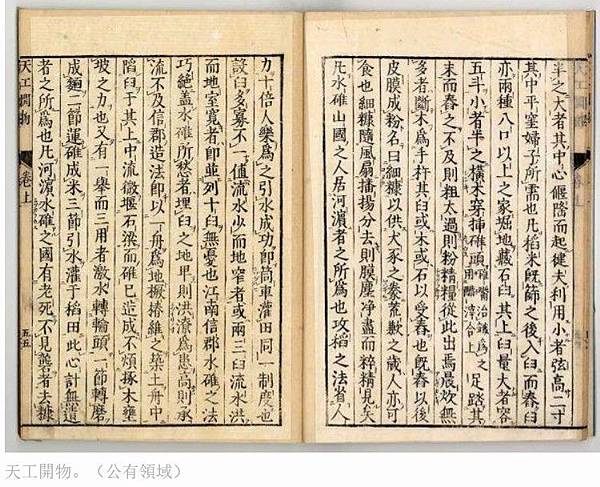 半之大者其中心偃隆而起健夫利用小者弦高二寸
其中平窪婦子所需也凡稻米既篩之後入臼而舂臼
亦兩種八口以上之家堀地藏石臼其上臼量大者容
五斗小者半之橫木穿挿碓頭碓嘴冶鐵爲之用醋滓合上足踏其
末而舂之不及則粗太過則粉精糧從此出焉晨炊無
多者斷木爲手杵其臼或木或石以受舂也既舂以後
皮膜成粉名曰細糠以供犬豕之豢荒歉之歲人亦可
食也細糠隨風扇播揚分去則膜塵淨盡而粹精見矣
凡水碓山國之人居河濱者之所爲也攻稻之法省人
力十倍人樂爲之引水成功即筒車灌田同一制度也
設臼多寡不一值流水少而地窄者或兩三臼流水洪
而地室寬者即並列十臼無憂也江南信郡水碓之法
巧絕蓋水碓所愁者埋臼之地卑則洪潦爲患高則承
流不及信郡造法即以一舟爲地橛樁維之築土舟中
陷臼于其上中流微堰石梁而碓已造成不煩椓木壅
坡之力也又有一舉而三用者激水轉輪頭一節轉磨
成麵二節運碓成米三節引水灌于稻田此心計無遺
者之所爲也凡河濱水碓之國有老死不見礱者去糠
天工開物 卷上 五五
天工開物。（公有領域）